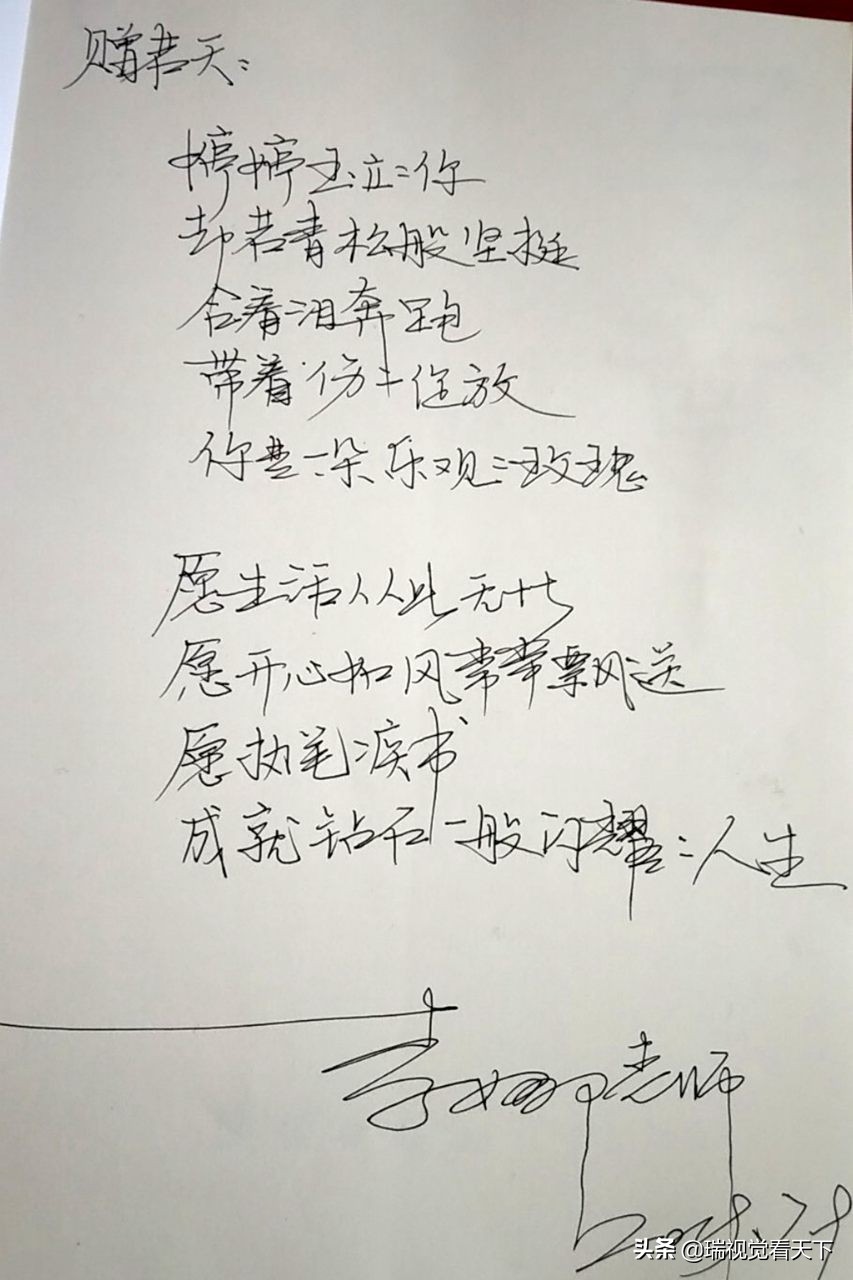 赠 天：
婷婷玉立的你
却若青松般坚挺
含着泪奔跑
带着伤的绽放
你是一朵乐观的玫瑰
愿生活从此无忧
愿开心如风常常飘送
愿执笔疾书
成就钻石一般闪耀的人生
李娜老师
头条 @瑞视觉看天下